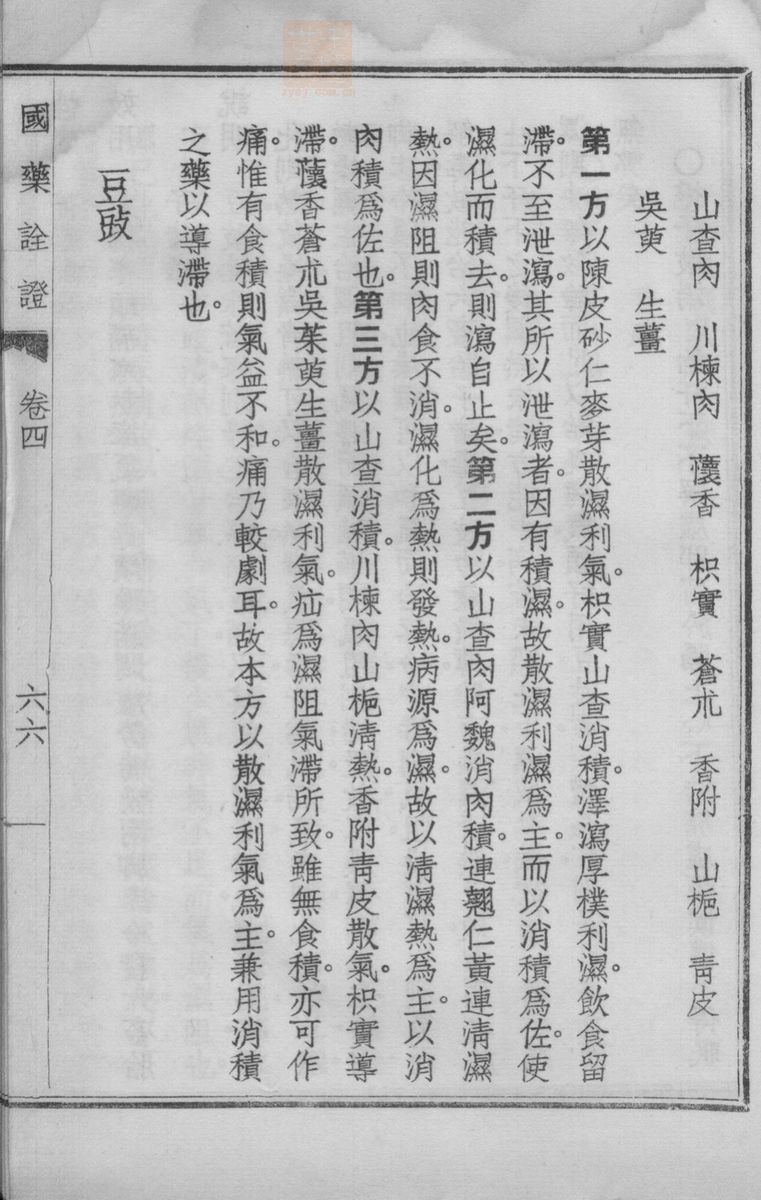 山查肉　川楝肉　蘹香　枳實　蒼朮　香附　山梔　靑皮
吳萸　生薑
第一方以陳皮砂仁麥芽散濕利氣。枳實山查消積。澤瀉厚樸利濕。飮食留
滯。不至泄瀉。其所以泄瀉者。因有積濕。故散濕利濕爲主。而以消積爲佐。使
濕化而積去。則瀉自止矣。第二方以山查肉阿魏消肉積。連翹仁黃連淸濕
熱。因濕阻則肉食不消。濕化爲熱則發熱。病源爲濕。故以淸濕熱爲主。以消
肉積爲佐也。第三方以山查消積。川楝肉山梔淸熱。香附靑皮散氣。枳實導
滯。蘹香蒼朮吳茱萸生薑散濕利氣。疝爲濕阻氣滯所致。雖無食積。亦可作
痛。惟有食積則氣益不和。痛乃較劇耳。故本方以散濕利氣爲主。兼用消積
之藥以導滯也。
豆豉
國藥詮證　卷四　六六
zysy.com.cn